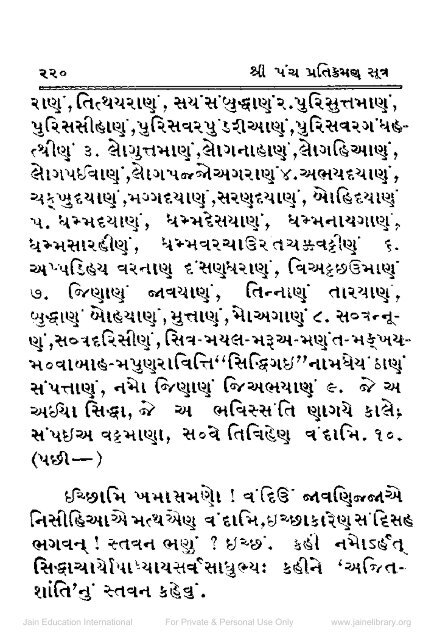 ૨૨૦ શ્રી પંચ પ્રતિક્રમણ સૂત્ર
રાણં, તિત્થયરાણં, સયંસંબુદ્ધાણં ૨. પુરિસુત્તમાણં,
પુરિસસીહાણં, પુરિસવરપુંડરીઆણં, પુરિસવરગંધહ-
ત્થીણં ૩. લોગુત્તમાણં, લોગનાહાણં, લોગહિઆણં,
લોગપઈવાણં, લોગપજ્જોઅગરાણં ૪. અભયદયાણં,
ચક્ખુદયાણં, મગ્ગદયાણં, સરણદયાણં, બોહિદયાણં
૫. ધમ્મદયાણં, ધમ્મદેસયાણં, ધમ્મનાયગાણં,
ધમ્મસારહીણં, ધમ્મવરચાઉરંતચક્કવટ્ટીણં ૬.
અપ્પડિહય વરનાણ દંસણધરાણં, વિઅટ્ટછઉમાણં
૭. જિણાણં જાવયાણં, તિન્નાણં તારયાણં,
બુદ્ધાણં બોહયાણં, મુત્તાણં, મોઅગાણં ૮. સવ્વન્નૂ-
ણં, સવ્વદરિસીણં, સિવ-મયલ-મરૂઅ-મણંત-મક્ખય-
મવ્વાબાહ-મપુણરાવિત્તિ “સિદ્ધિગઇ” નામધેયં ઠાણં
સંપત્તાણં, નમો જિણાણં જિઅભયાણં ૯. જે અ
અઈયા સિદ્ધા, જે અ ભવિસ્સંતિ ણાગયે કાલે;
સંપઇઅ વટ્ટમાણા, સવ્વે તિવિહેણ વંદામિ. ૧૦.
(પછી—)
ઇચ્છામિ ખમાસમણો ! વંદિઉં જાવણિજ્જાએ
નિસીહિઆએ મત્થએણ વંદામિ, ઇચ્છાકારેણ સંદિસહ
ભગવન્ ! સ્તવન ભણું ? ઇચ્છં. કહી નમોઽર્હત્
સિદ્ધાચાર્યોપાધ્યાયસર્વસાધુભ્યઃ કહીને ‘અજિત-
શાંતિ’નું સ્તવન કહેવું.
Jain Education International For Private & Personal Use Only www.jainelibrary.org